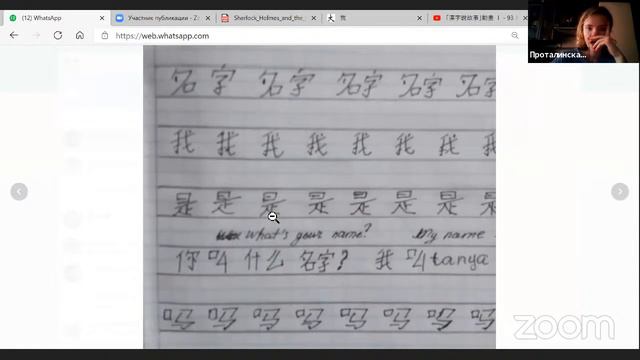 (12) WhatsApp
Участник публикации - Zo
Sherlock_Holmes_and_the_
我
「漢字說故事」動畫 I - 93
https://web.whatsapp.com
Проталинска...
名字 名字 名字 名字 名字
我 我 我 我 我 我 我 我
是 是 是 是 是 是 是 是
What's your name? My name
你叫什么名字? 我叫tanya
zoom